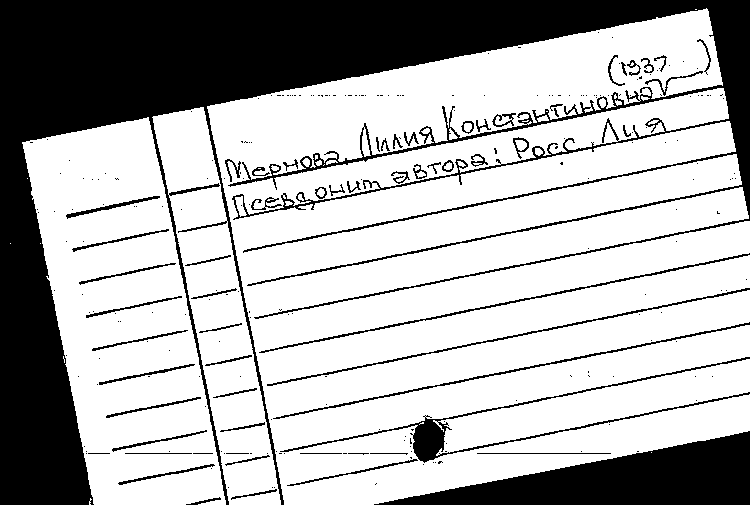 (1937      )
Мернова, Лилия Константиновна
Псевдоним автора: Росс, Лия